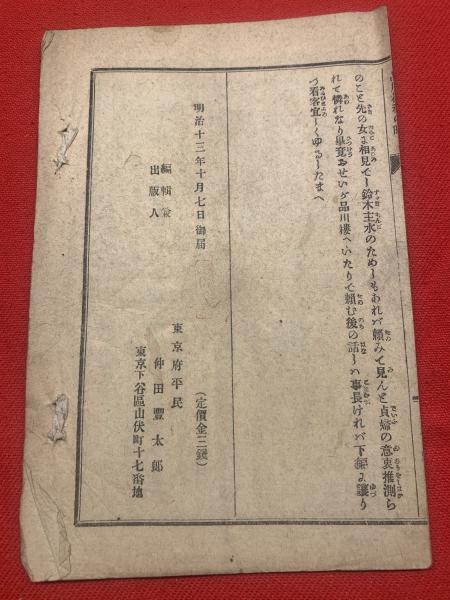 のこと先の女に相見でし鈴木主水のためしもあれバ頼みて見んと貞婦の意衷推測ら
れて憐れなり畢竟おせいが品川樓へいたりて頼む後の話しハ事長けれバ下編に讓り
つ看客宜しくゆるしたまへ
明治十三年十月七日御届
(定價金三錢)
編輯兼
出版人
東京府平民
仲田豐太郎
東京下谷區山伏町十七番地